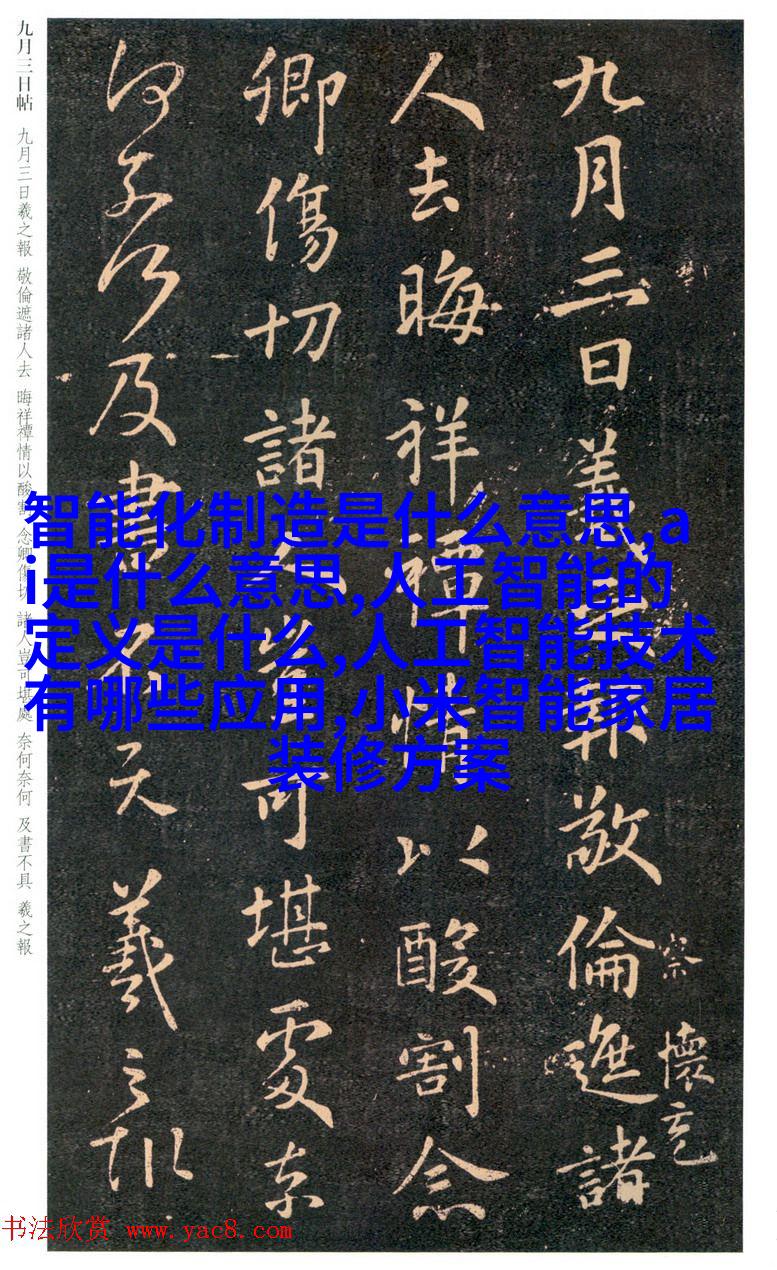 九月三日羲之報敬倫遮諸
察懷充
人去晦祥禫情以酸割念
卿傷切諸人豈可堪處奈
何奈何及書不具羲之報
九月三日帖 九月三日羲之報 敬倫遮諸人去 晦祥禫情以酸割 念卿傷切 諸人豈可堪處 奈何奈何 及書不具 羲之報
智能化制造是什么意思,a
i是什么意思,人工智能的
定义是什么,人工智能技术
有哪些应用,小米智能家居
装修方案
书法欣赏 www.yac8.com